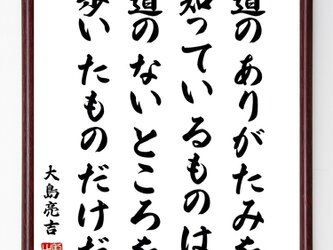 道のありがたみを
知っているものは
道のないところを
歩いたものだけだ
大島亮吉